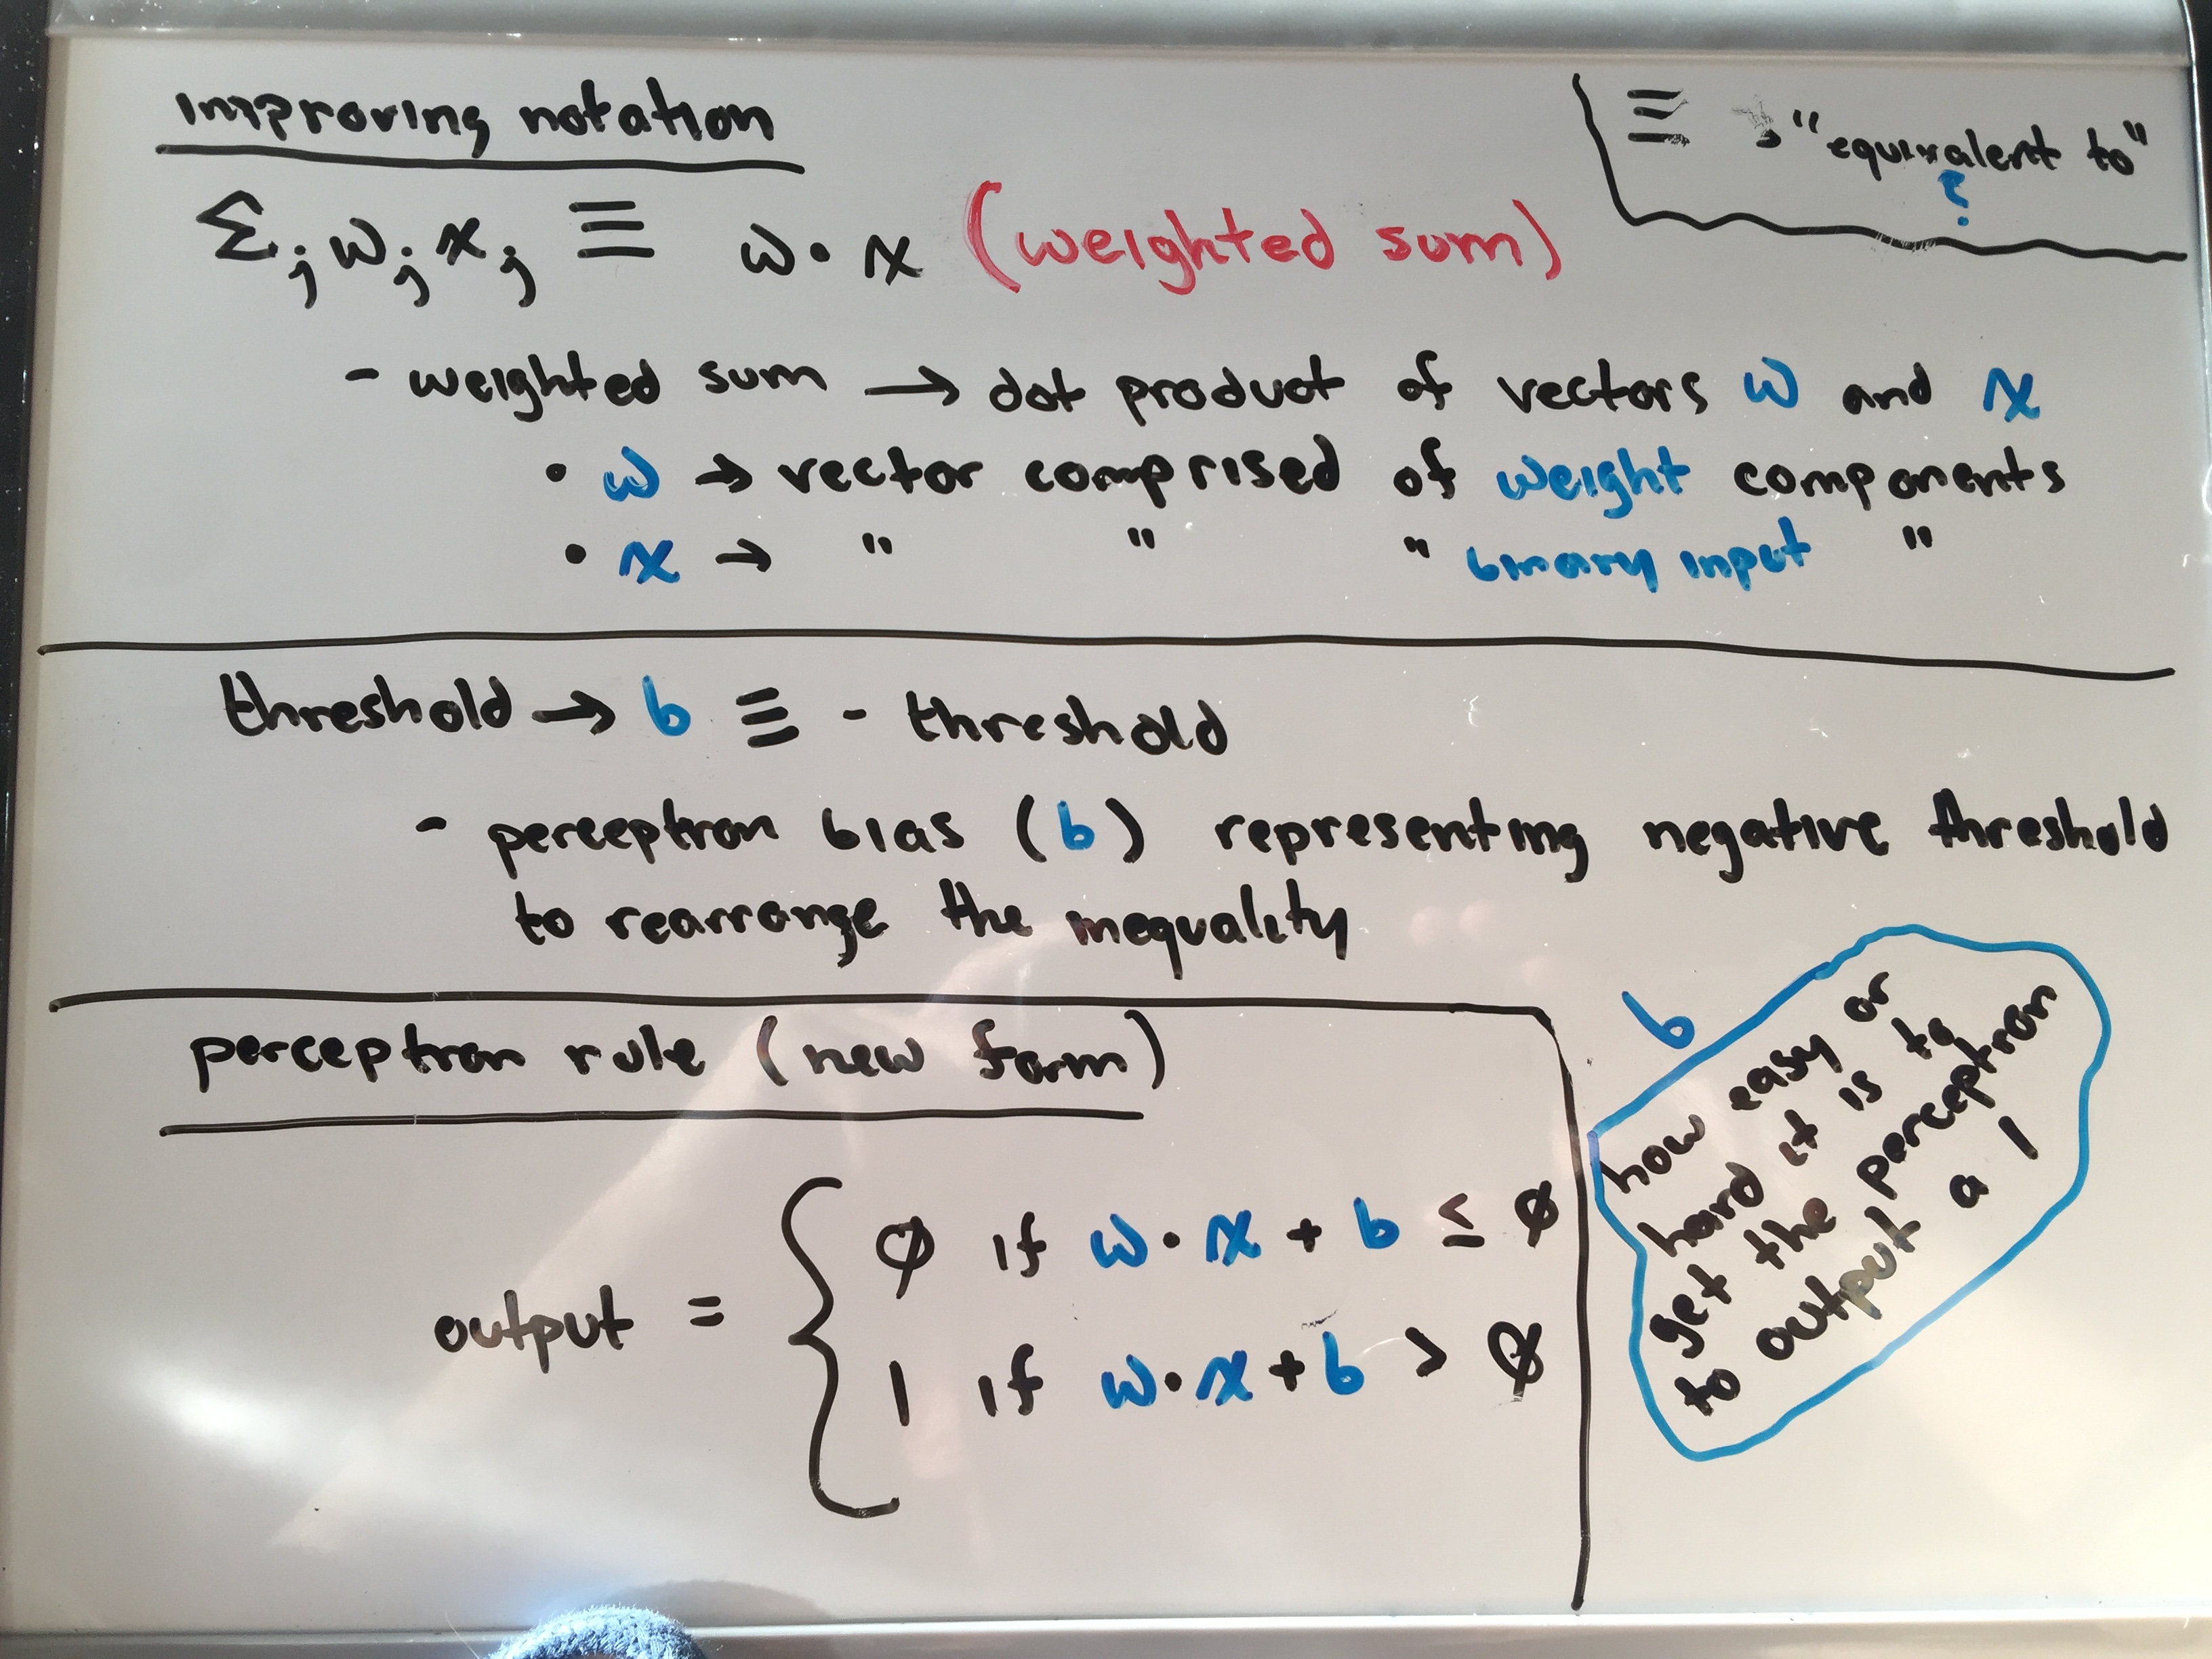 improving notation
≡ → "equivalent to"
?
Σj wj xj ≡ w · x (weighted sum)
- weighted sum → dot product of vectors w and x
• w → vector comprised of weight components
• x → " " " binary input "
threshold → b ≡ - threshold
- perceptron bias (b) representing negative threshold
to rearrange the inequality
perceptron rule (new form)
output = {
0 if w · x + b ≤ 0
1 if w · x + b > 0
b
how easy or
hard it is to
get the perceptron
to output a 1